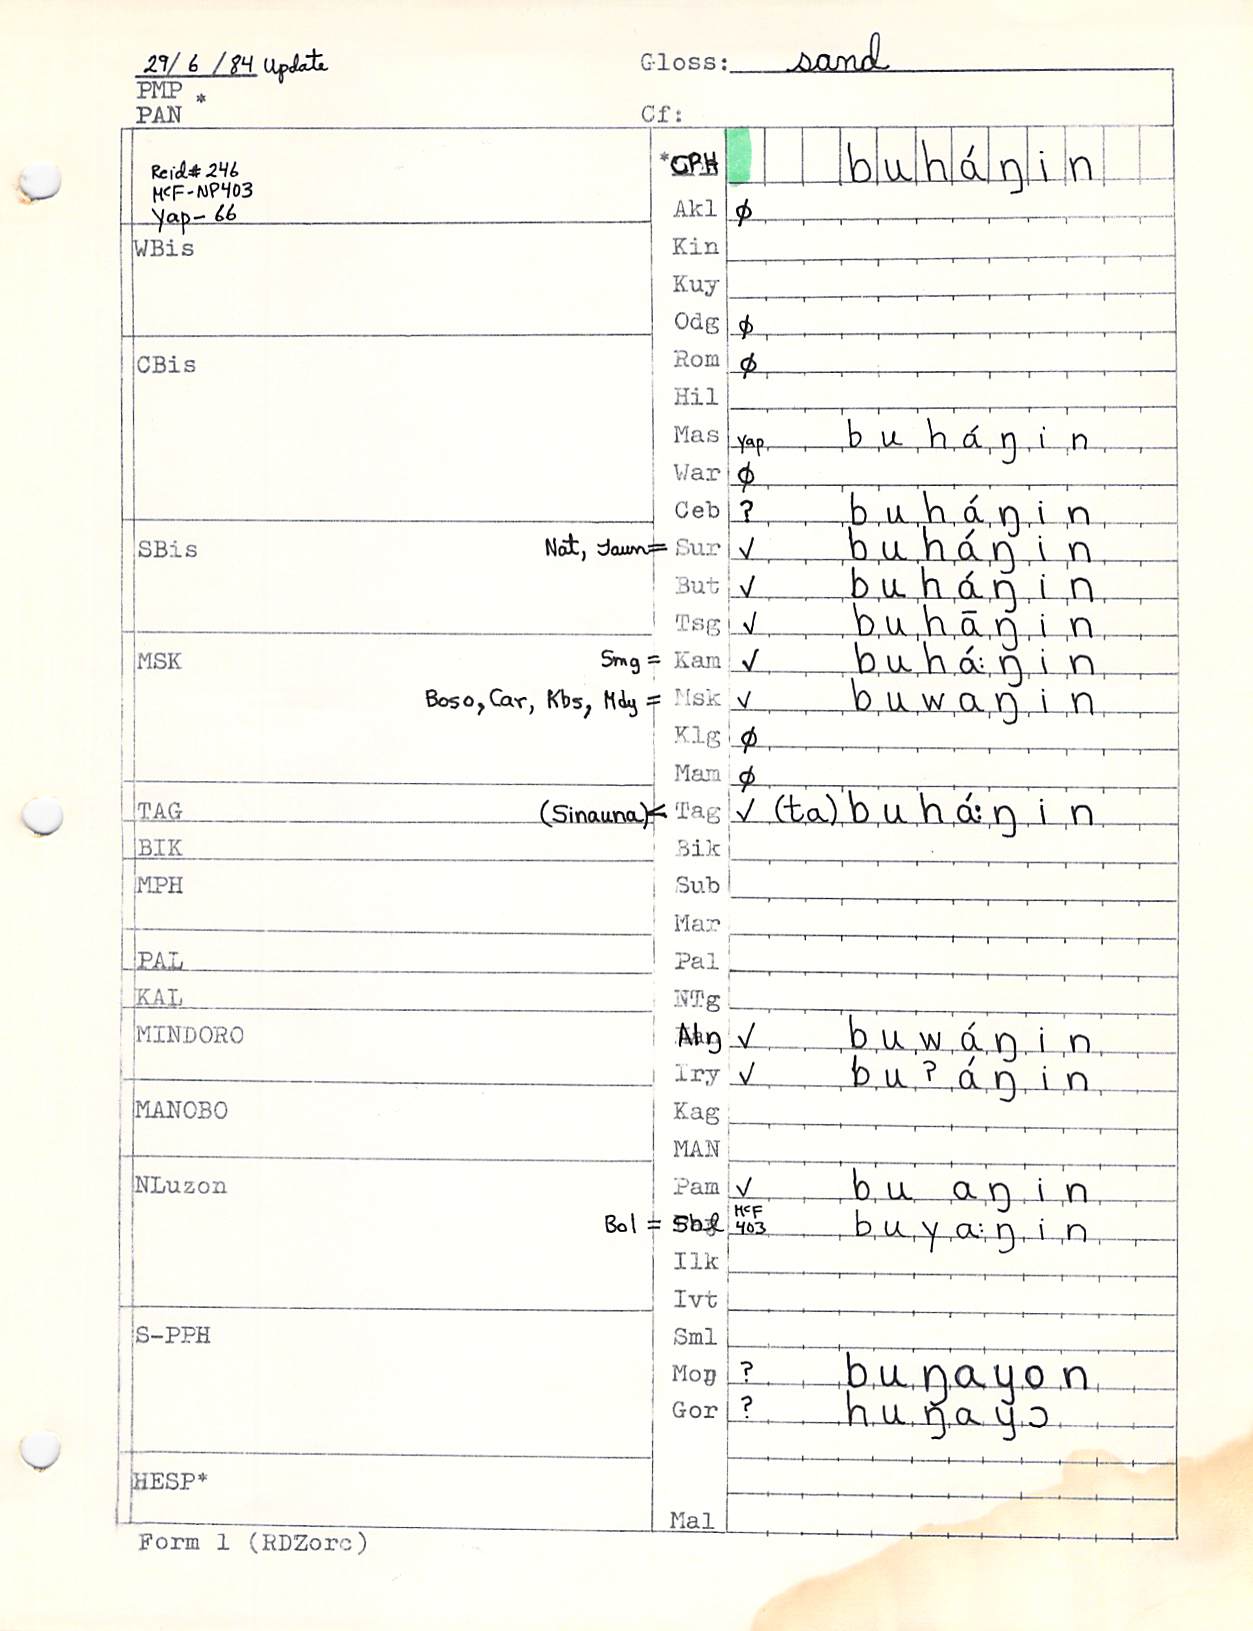 29/ 6 /84 Update Gloss: sand
PMP
PAN * Cf:
Reid# 246
McF-NP403
Yap- 66
*CPH buháŋin
Akl ∅
WBis Kin
Kuy
Odg ∅
CBis Rom ∅
Hil
Mas Yap buháŋin
War ∅
Ceb ? buháŋin
SBis Nat, Jaun= Sur ✓ buháŋin
But ✓ buháŋin
Tsg ✓ buhāŋin
MSK Smg = Kam ✓ buhá:ŋin
Boso, Car, Kbs, Mdy = Msk ✓ buwaŋin
Klg ∅
Mam ∅
TAG (Sinauna)< Tag ✓ (ta)buhá:ŋin
BIK Bik
MPH Sub
Mar
PAL Pal
KAL NTg
MINDORO Alŋ ✓ buwáŋin
Iry ✓ buʔáŋin
MANOBO Kag
MAN
NLuzon Pam ✓ bu aŋin
Bol = Sbl McF 403 buya:ŋin
Ilk
Ivt
S-PPH Sml
Moŋ ? buŋayon
Gor ? huŋayɔ
HESP*
Mal
Form 1 (RDZorc)